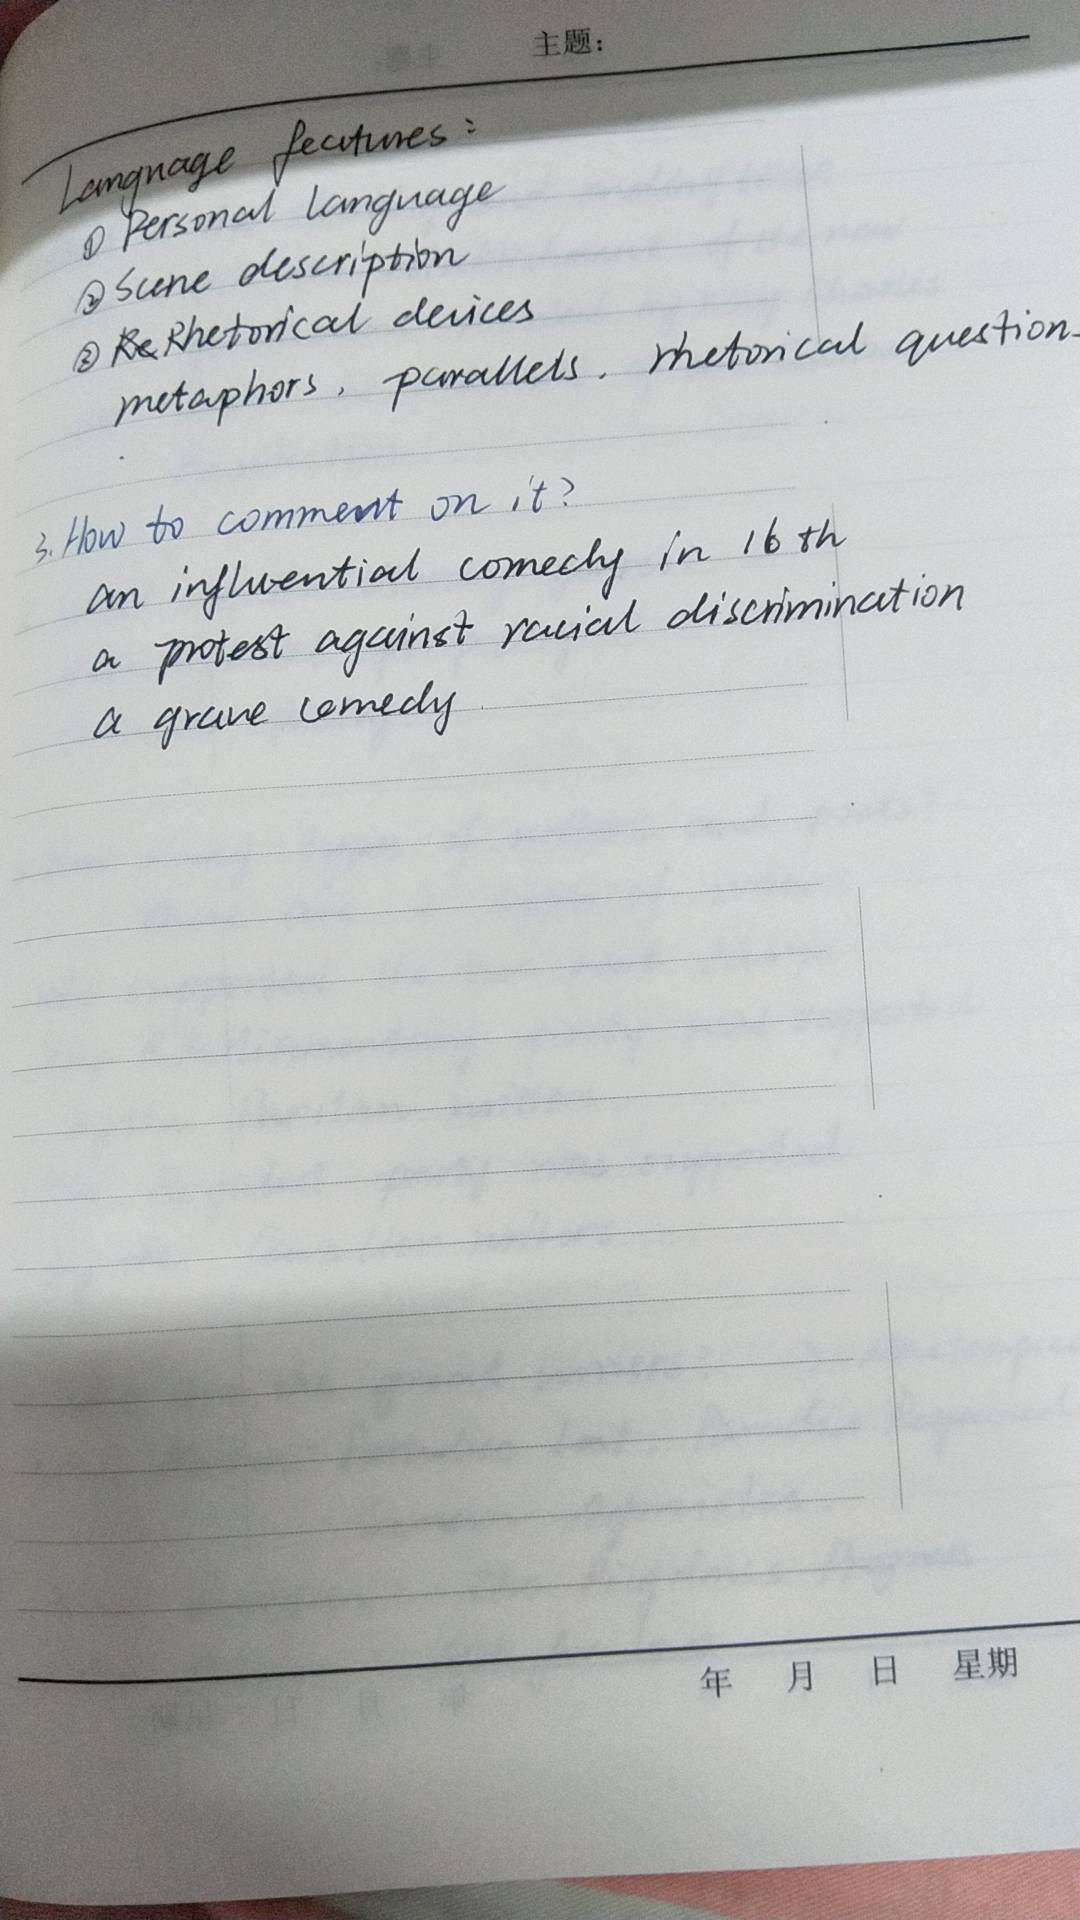 主题:
Language features:
① Personal language
② Scene description
③ Rhetorical devices
metaphors, parallels, rhetorical question
3. How to comment on it?
an influential comedy in 16 th
a protest against racial discrimination
a grave comedy
年 月 日 星期